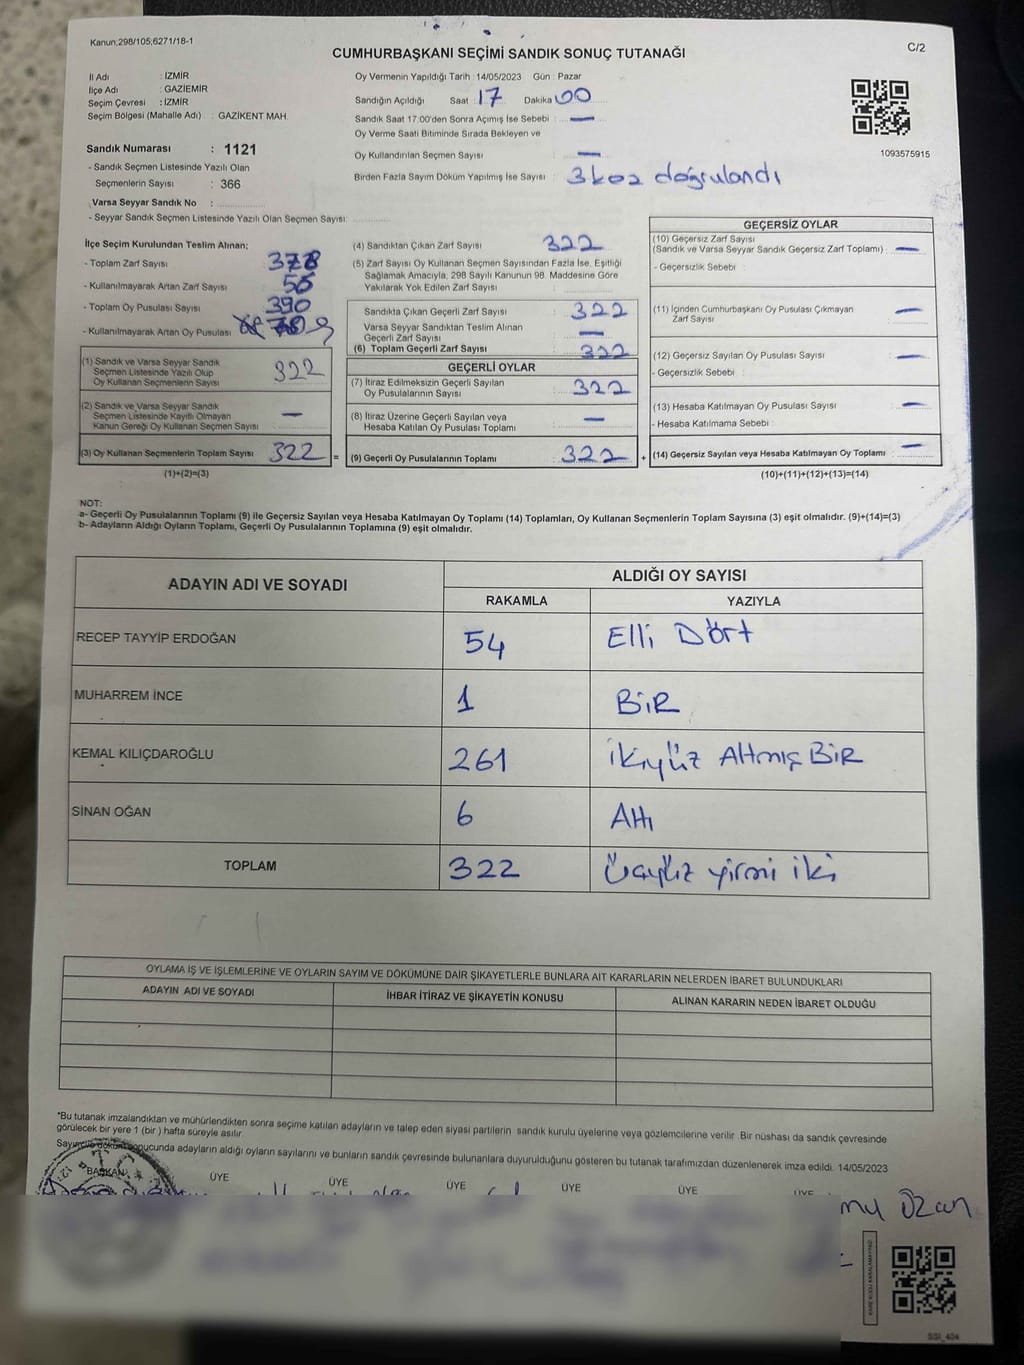 Kanun;298/105;6271/18-1
CUMHURBAŞKANI SEÇİMİ SANDIK SONUÇ TUTANAĞI
C/2
İl Adı : İZMİR
İlçe Adı : GAZİEMİR
Seçim Çevresi : İZMİR
Seçim Bölgesi (Mahalle Adı) : GAZİKENT MAH.
Sandık Numarası : 1121
- Sandık Seçmen Listesinde Yazılı Olan
Seçmenlerin Sayısı : 366
Varsa Seyyar Sandık No :
- Seyyar Sandık Seçmen Listesinde Yazılı Olan Seçmen Sayısı:
Oy Vermenin Yapıldığı Tarih : 14/05/2023 Gün : Pazar
Sandığın Açıldığı Saat 17 Dakika 00
Sandık Saat 17:00'den Sonra Açımış İse Sebebi : —
Oy Verme Saati Bitiminde Sırada Bekleyen ve
Oy Kullandırılan Seçmen Sayısı : —
Birden Fazla Sayım Döküm Yapılmış İse Sayısı : 3 kez doğrulandı
1093575915
İlçe Seçim Kurulundan Teslim Alınan;
- Toplam Zarf Sayısı 378
- Kullanılmayarak Artan Zarf Sayısı 56
- Toplam Oy Pusulası Sayısı 390
- Kullanılmayarak Artan Oy Pusulası
(1) Sandık ve Varsa Seyyar Sandık
Seçmen Listesinde Yazılı Olup
Oy Kullanan Seçmenlerin Sayısı 322
(2) Sandık ve Varsa Seyyar Sandık
Seçmen Listesinde Kayıtlı Olmayan
Kanun Gereği Oy Kullanan Seçmen Sayısı —
(3) Oy Kullanan Seçmenlerin Toplam Sayısı 322 =
(1)+(2)=(3)
(4) Sandıktan Çıkan Zarf Sayısı 322
(5) Zarf Sayısı Oy Kullanan Seçmen Sayısından Fazla İse, Eşitliği
Sağlamak Amacıyla, 298 Sayılı Kanunun 98. Maddesine Göre
Yakılarak Yok Edilen Zarf Sayısı
Sandıkta Çıkan Geçerli Zarf Sayısı 322
Varsa Seyyar Sandıktan Teslim Alınan
Geçerli Zarf Sayısı —
(6) Toplam Geçerli Zarf Sayısı 322
GEÇERLİ OYLAR
(7) İtiraz Edilmeksizin Geçerli Sayılan
Oy Pusulalarının Sayısı 322
(8) İtiraz Üzerine Geçerli Sayılan veya
Hesaba Katılan Oy Pusulası Toplamı —
(9) Geçerli Oy Pusulalarının Toplamı 322 +
GEÇERSİZ OYLAR
(10) Geçersiz Zarf Sayısı
(Sandık ve Varsa Seyyar Sandık Geçersiz Zarf Toplamı) —
- Geçersizlik Sebebi :
(11) İçinden Cumhurbaşkanı Oy Pusulası Çıkmayan
Zarf Sayısı —
(12) Geçersiz Sayılan Oy Pusulası Sayısı —
- Geçersizlik Sebebi :
(13) Hesaba Katılmayan Oy Pusulası Sayısı —
- Hesaba Katılmama Sebebi :
(14) Geçersiz Sayılan veya Hesaba Katılmayan Oy Toplamı —
(10)+(11)+(12)+(13)=(14)
NOT:
a- Geçerli Oy Pusulalarının Toplamı (9) ile Geçersiz Sayılan veya Hesaba Katılmayan Oy Toplamı (14) Toplamları, Oy Kullanan Seçmenlerin Toplam Sayısına (3) eşit olmalıdır. (9)+(14)=(3)
b- Adayların Aldığı Oyların Toplamı, Geçerli Oy Pusulalarının Toplamına (9) eşit olmalıdır.
ADAYIN ADI VE SOYADI ALDIĞI OY SAYISI
RAKAMLA YAZIYLA
RECEP TAYYİP ERDOĞAN 54 Elli Dört
MUHARREM İNCE 1 BİR
KEMAL KILIÇDAROĞLU 261 İkiyüz Altmış BİR
SİNAN OĞAN 6 Altı
TOPLAM 322 Üçyüz yirmi iki
OYLAMA İŞ VE İŞLEMLERİNE VE OYLARIN SAYIM VE DÖKÜMÜNE DAİR ŞİKAYETLERLE BUNLARA AİT KARARLARIN NELERDEN İBARET BULUNDUKLARI
ADAYIN ADI VE SOYADI İHBAR İTİRAZ VE ŞİKAYETİN KONUSU ALINAN KARARIN NEDEN İBARET OLDUĞU
*Bu tutanak imzalandıktan ve mühürlendikten sonra seçime katılan adayların ve talep eden siyasi partilerin sandık kurulu üyelerine veya gözlemcilerine verilir. Bir nüshası da sandık çevresinde
görülecek bir yere 1 (bir) hafta süreyle asılır.
Sayım ve döküm sonucunda adayların aldığı oyların sayılarını ve bunların sandık çevresinde bulunanlara duyurulduğunu gösteren bu tutanak tarafımızdan düzenlenerek imza edildi. 14/05/2023
BAŞKAN ÜYE ÜYE ÜYE ÜYE ÜYE ÜYE
Ozan
SSI_404